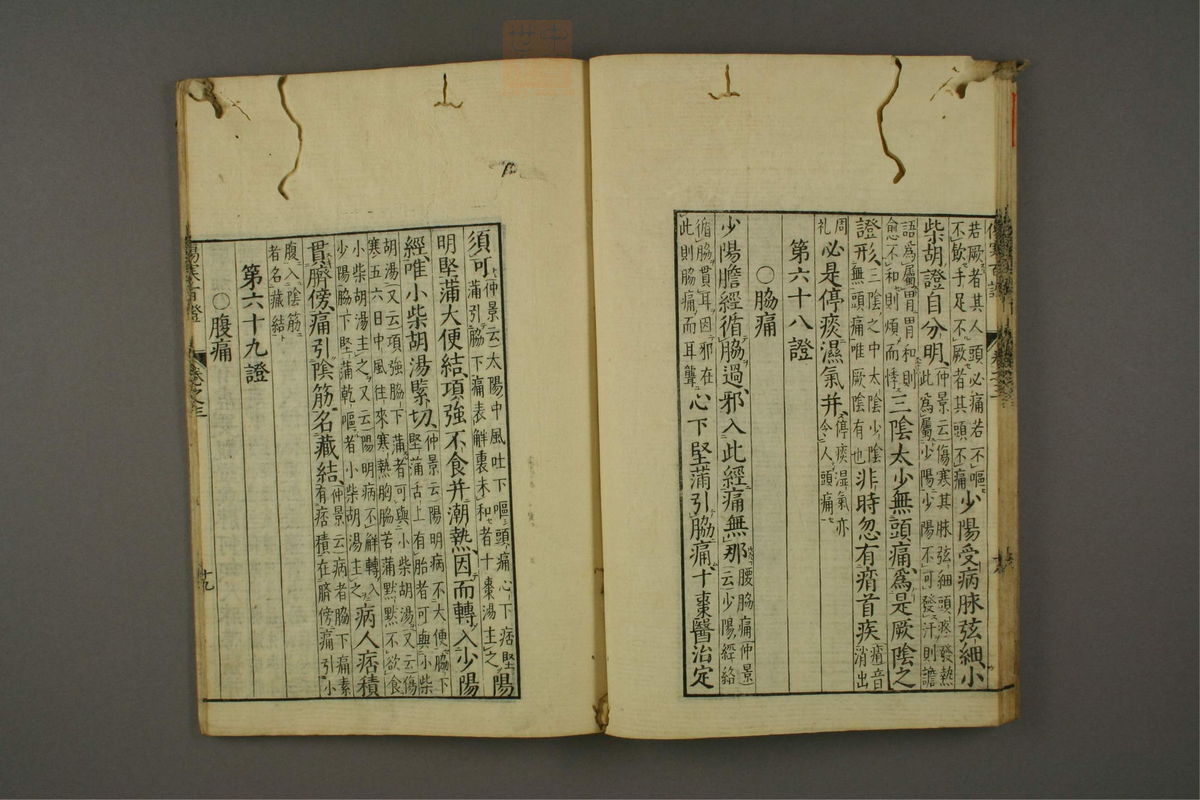 若厥者其人頭必痛若不嘔
不飲手足不厥者其頭不痛
少陽受病脉弦細小
柴胡證自分明
仲景云傷寒其脉弦細頭疼發熱
此為屬少陽少陽不可發汗則譫
語為屬胃胃和則
愈不和則煩而悸
三陰太少無頭痛為是厥陰之
證形
三陰之中太陰少陰
無頭痛唯厥陰有也
非時忽有痟首疾
痟音
消出
周
礼
必是停痰濕氣并
停痰濕氣亦
令人頭痛
第六十八證
○脇痛
少陽膽經循脇過邪入此經痛無那
腰脇痛仲景
云少陽經絡
循脇貫耳因邪在
此則脇痛而耳聾
心下堅蒲引脇痛十棗醫治定
須可
仲景云太陽中風吐下嘔頭痛心下痞堅
蒲引脇下痛表觧裏未和者十棗湯主之
陽
明堅蒲大便結項強不食并潮熱因而轉入少陽
經唯小柴胡湯緊切
仲景云陽明病不大便脇下
堅蒲舌上有胎者可與小柴
胡湯又云項強脇下蒲者可與小柴胡湯又云傷
寒五六日中風往來寒熱胸脇苦蒲默默不欲食
小柴胡湯主之又云陽明病不觧轉入
少陽脇下堅蒲乾嘔者小柴胡湯主之
病人痞積
貫臍傍痛引陰筋名藏結
仲景云病者脇下痛素
有痞積在臍傍痛引小
腹入陰筋
者名藏結
第六十九證
○腹痛
傷寒百證 卷之三 十九